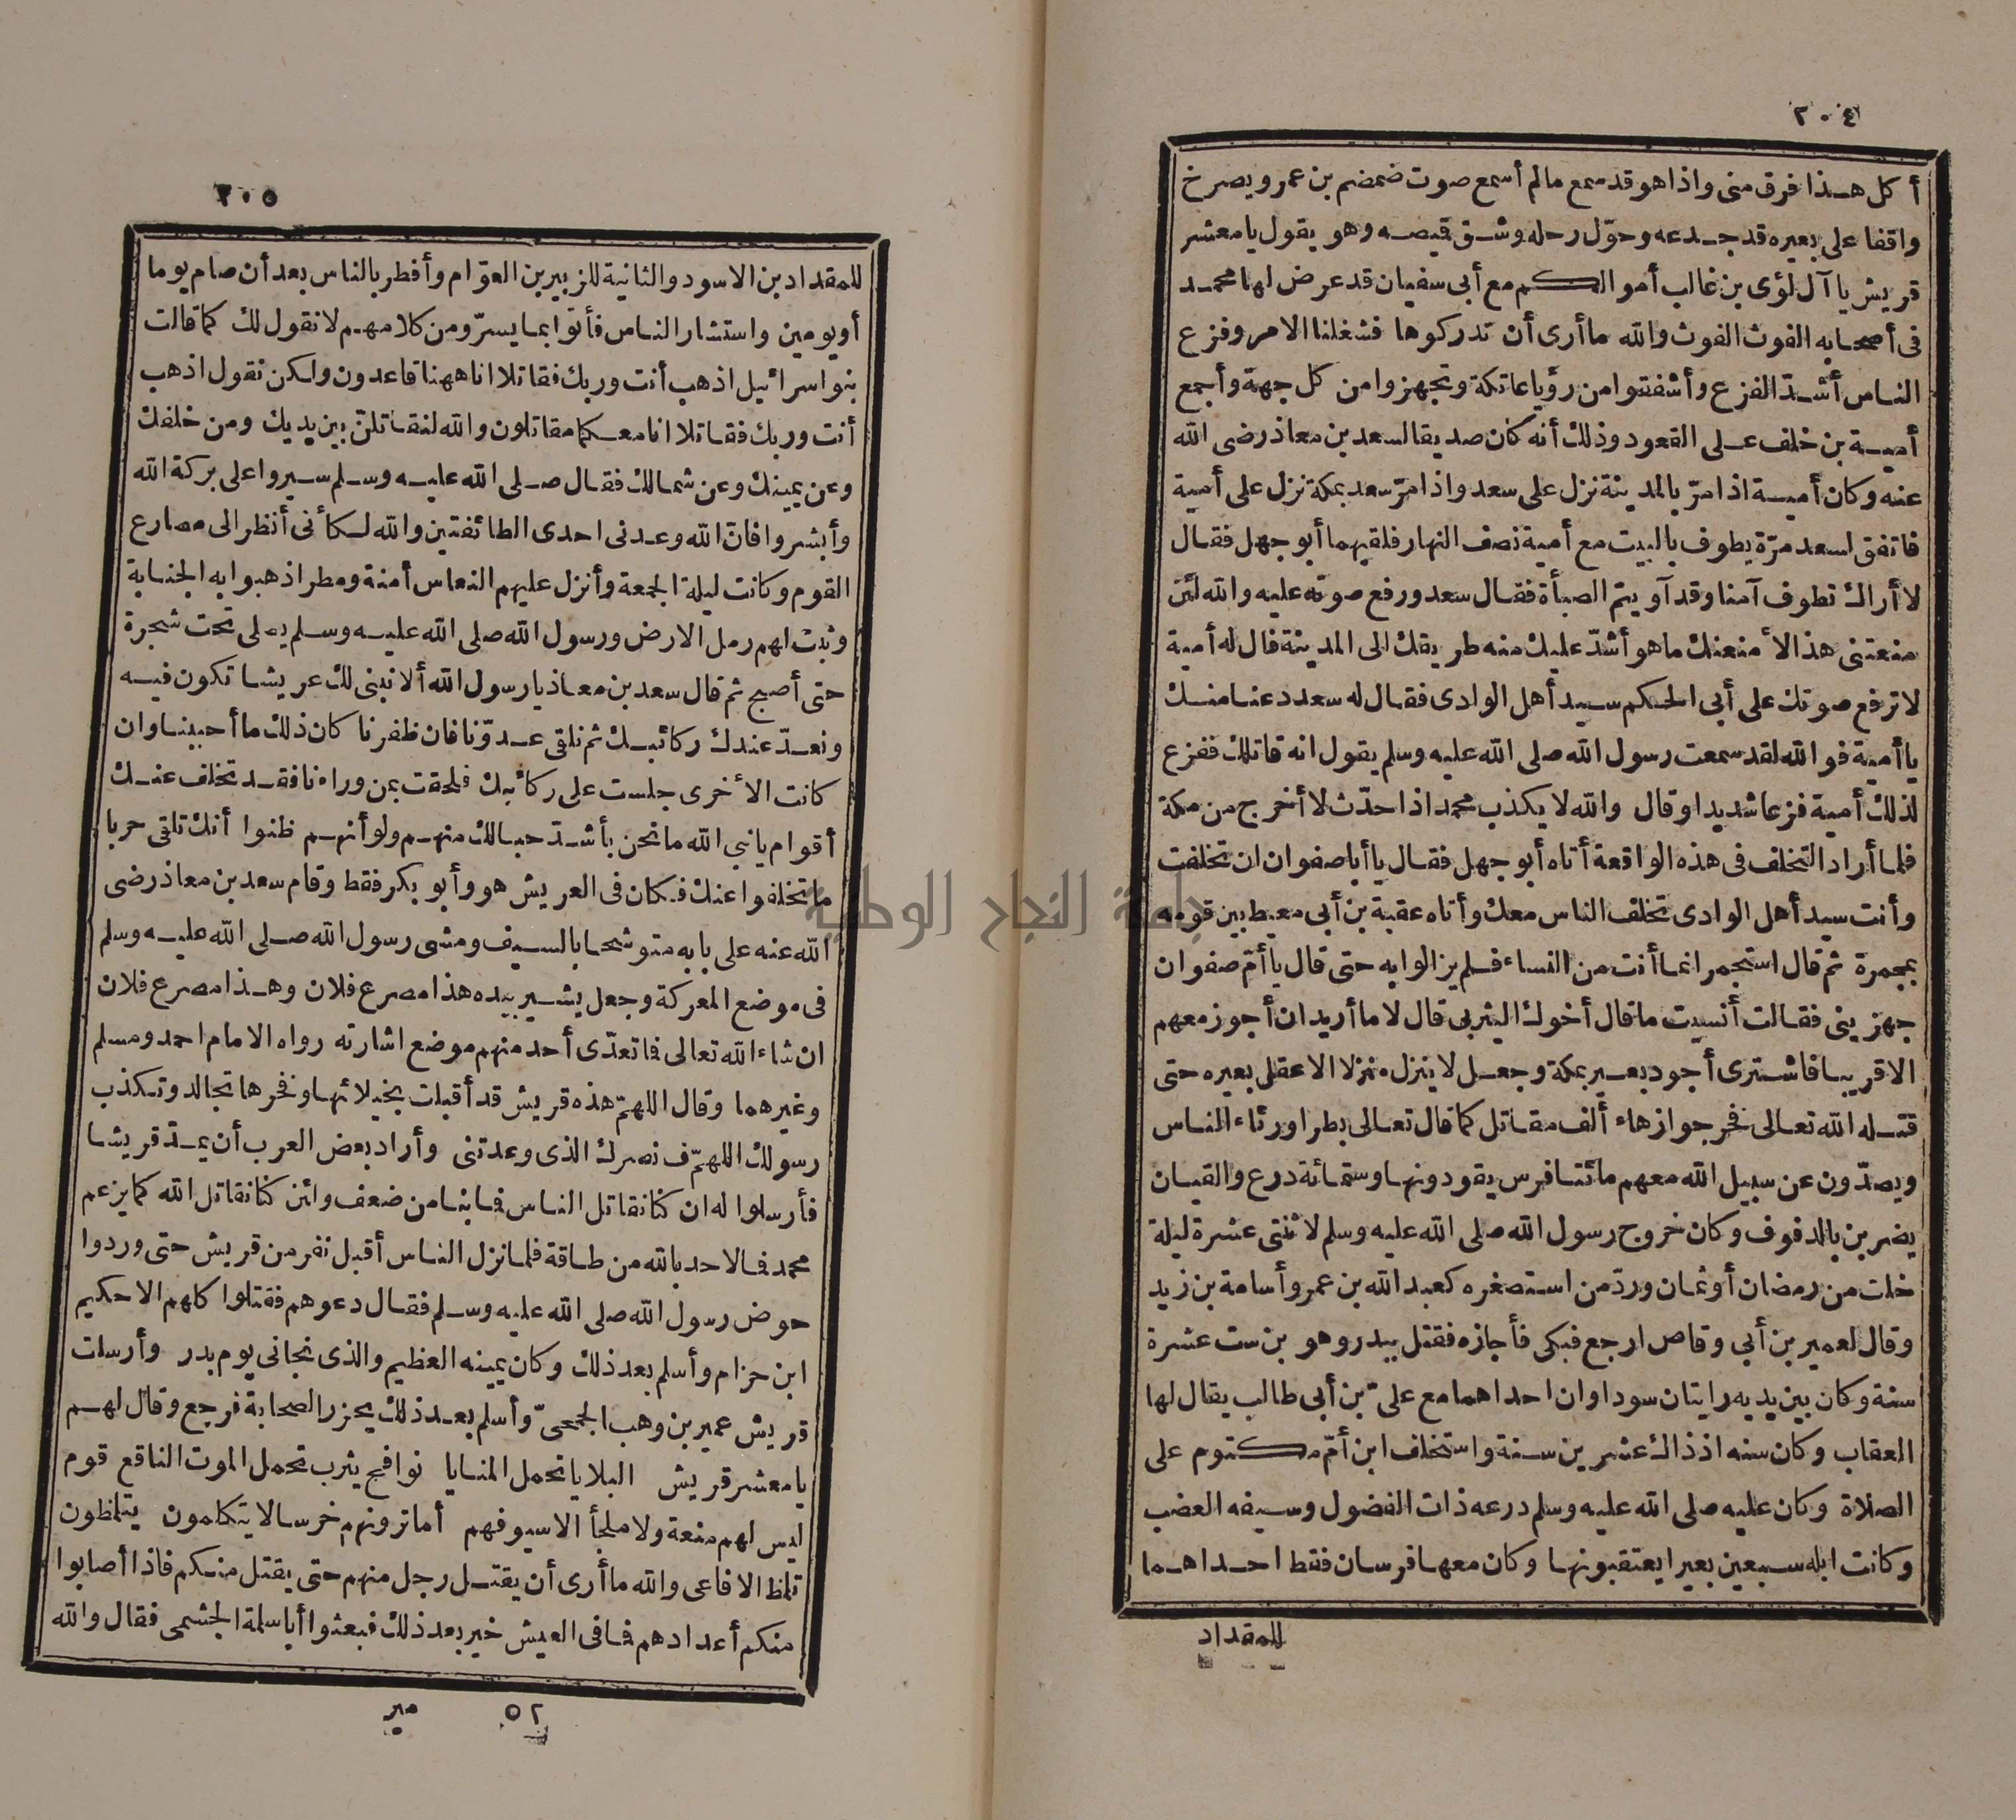 ٢٠٤
أكل هذا فرق مني واذا هو قد سمع مالم أسمع صوت ضمضم بن عمرو يصرخ
واقفا على بعيره قد جدعه وحوّل رحله وشق قيصه وهو يقول يا معشر
قريش يا آل لؤى بن غالب أموالكم مع أبى سفيان قد عرض لها محمد
فى أصحابه الغوث الغوث والله ما أرى أن تدركوها فشغلنا الامر وفزع
الناس أشدّ الفزع وأشفقوا من رؤيا عاتكة وتجهزوا من كل جهة وأجمع
أمية بن خلف على القعود وذلك أنه كان صديقا لسعد بن معاذ رضى الله
عنه وكان أمية اذا مرّ بالمدينة نزل على سعد واذا مرّ سعد بمكة نزل على أمية
فاتفق لسعد مرّة يطوف بالبيت مع أمية نصف النهار فلقيهما أبو جهل فقال
لا أراك تطوف آمنا وقد آويتم الصبأة فقال سعد ورفع صوته عليه والله لئن
منعتنى هذا لأمنعنك ما هو أشدّ عليك منه طريقك الى المدينة قال له أمية
لا ترفع صوتك على أبى الحكم سيد أهل الوادى فقال له سعد دعنا منك
يا أمية فو الله لقد سمعت رسول الله صلى الله عليه وسلم يقول انه قاتلك ففزع
لذلك أمية فزعا شديدا وقال والله لا يكذب محمد اذا حدّث لا أخرج من مكة
فلما أراد التخلف فى هذه الواقعة أتاه أبو جهل فقال يا أبا صفوان ان تخلفت
وأنت سيد أهل الوادى تخلف الناس معك وأتاه عقبة بن أبى معيط بين قومه
بمجمرة ثم قال استجمر انما أنت من النساء فلم يزالوا به حتى قال يا أمّ صفوان
جهزينى فقالت أنسيت ما قال أخوك اليثربى قال لا ما أريد ان أجوز معهم
الا قريبا فاشترى أجود بعير بمكة وجعل لا ينزل منزلا الا عقل بعيره حتى
قتله الله تعالى فخرجوا زهاء ألف مقاتل كما قال تعالى بطرا ورئاء الناس
ويصدّون عن سبيل الله معهم مائتا فرس يقودونها وستمائة درع والقيان
يضربن بالدفوف وكان خروج رسول الله صلى الله عليه وسلم لاثنتى عشرة ليلة
خلت من رمضان أو ثمان وردّ من استصغره كعبد الله بن عمر وأسامة بن زيد
وقال لعمير بن أبي وقاص ارجع فبكى فأجازه فقتل ببدر وهو بن ست عشرة
سنة وكان بين يديه رايتان سوداوان احداهما مع علىّ بن أبى طالب يقال لها
العقاب وكان سنه اذ ذاك عشرين سنة واستخلف ابن أمّ مكتوم على
الصلاة وكان عليه صلى الله عليه وسلم درعه ذات الفضول وسيفه العضب
وكانت ابله سبعين بعيرا يعتقبونها وكان معها فرسان فقط احداهما
للمقداد
٢٠٥
للمقداد بن الاسود والثانية للزبير بن العوّام وأفطر بالناس بعد أن صام يوما
أو يومين واستشار الناس فأتوا بما يسرّ ومن كلامهم لا نقول لك كما قالت
بنو اسرائيل اذهب أنت وربك فقاتلا انا ههنا قاعدون ولكن نقول اذهب
أنت وربك فقاتلا انا معكما مقاتلون والله لنقاتلنّ بين يديك ومن خلفك
وعن يمينك وعن شمالك فقال صلى الله عليه وسلم سيروا على بركة الله
وأبشروا فانّ الله وعدنى احدى الطائفتين والله لكأنى أنظر الى مصارع
القوم وكانت ليلة الجمعة وأنزل عليهم النعاس أمنة ومطر اذهبوا به الجنابة
وثبت لهم رمل الارض ورسول الله صلى الله عليه وسلم يصلى تحت شجرة
حتى أصبح ثم قال سعد بن معاذ يا رسول الله ألا نبنى لك عريشا تكون فيه
ونعدّ عندك ركائبك ثم نلقى عدوّنا فان ظفرنا كان ذلك ما أحببنا وان
كانت الأخرى جلست على ركائبك فلحقت بمن وراءنا فقد تخلف عنك
أقوام يا نبي الله ما نحن بأشدّ حبا لك منهم ولو أنهم ظنوا أنك تلقى حربا
ما تخلفوا عنك فكان فى العريش هو وأبو بكر فقط وقام سعد بن معاذ رضى
الله عنه على بابه متوشحا بالسيف ومشى رسول الله صلى الله عليه وسلم
فى موضع المعركة وجعل يشير بيده هذا مصرع فلان وهذا مصرع فلان
ان شاء الله تعالى فما تعدّى أحد منهم موضع اشارته رواه الامام احمد ومسلم
وغيرهما وقال اللهمّ هذه قريش قد أقبلت بخيلائها وفخرها تجالد وتكذب
رسولك اللهمّ فنصرك الذى وعدتنى وأراد بعض العرب أن يمدّ قريشا
فأرسلوا له ان كنا نقاتل الناس فما بنا من ضعف وائن كنا نقاتل الله كما يزعم
محمد فما لاحد بالله من طاقة فلما نزل الناس أقبل نفر من قريش حتى وردوا
حوض رسول الله صلى الله عليه وسلم فقال دعوهم فقتلوا كلهم الا حكيم
ابن حزام وأسلم بعد ذلك وكان يمينه العظيم والذى نجانى يوم بدر وأرسلت
قريش عمير بن وهب الجمحىّ وأسلم بعد ذلك يحزر الصحابة فرجع وقال لهم
يا معشر قريش البلايا تحمل المنايا نواضح يثرب تحمل الموت الناقع قوم
ليس لهم منعة ولا ملجأ الا سيوفهم أما ترونهم خرسا لا يتكلمون يتلمظون
تلمظ الافاعى والله ما أرى أن يقتل رجل منهم حتى يقتل منكم فاذا أصابوا
منكم أعدادهم فما فى العيش خير بعد ذلك فبعثوا أبا سلمة الجشمى فقال والله
٥٢ مير
جامعة النجاح الوطنية